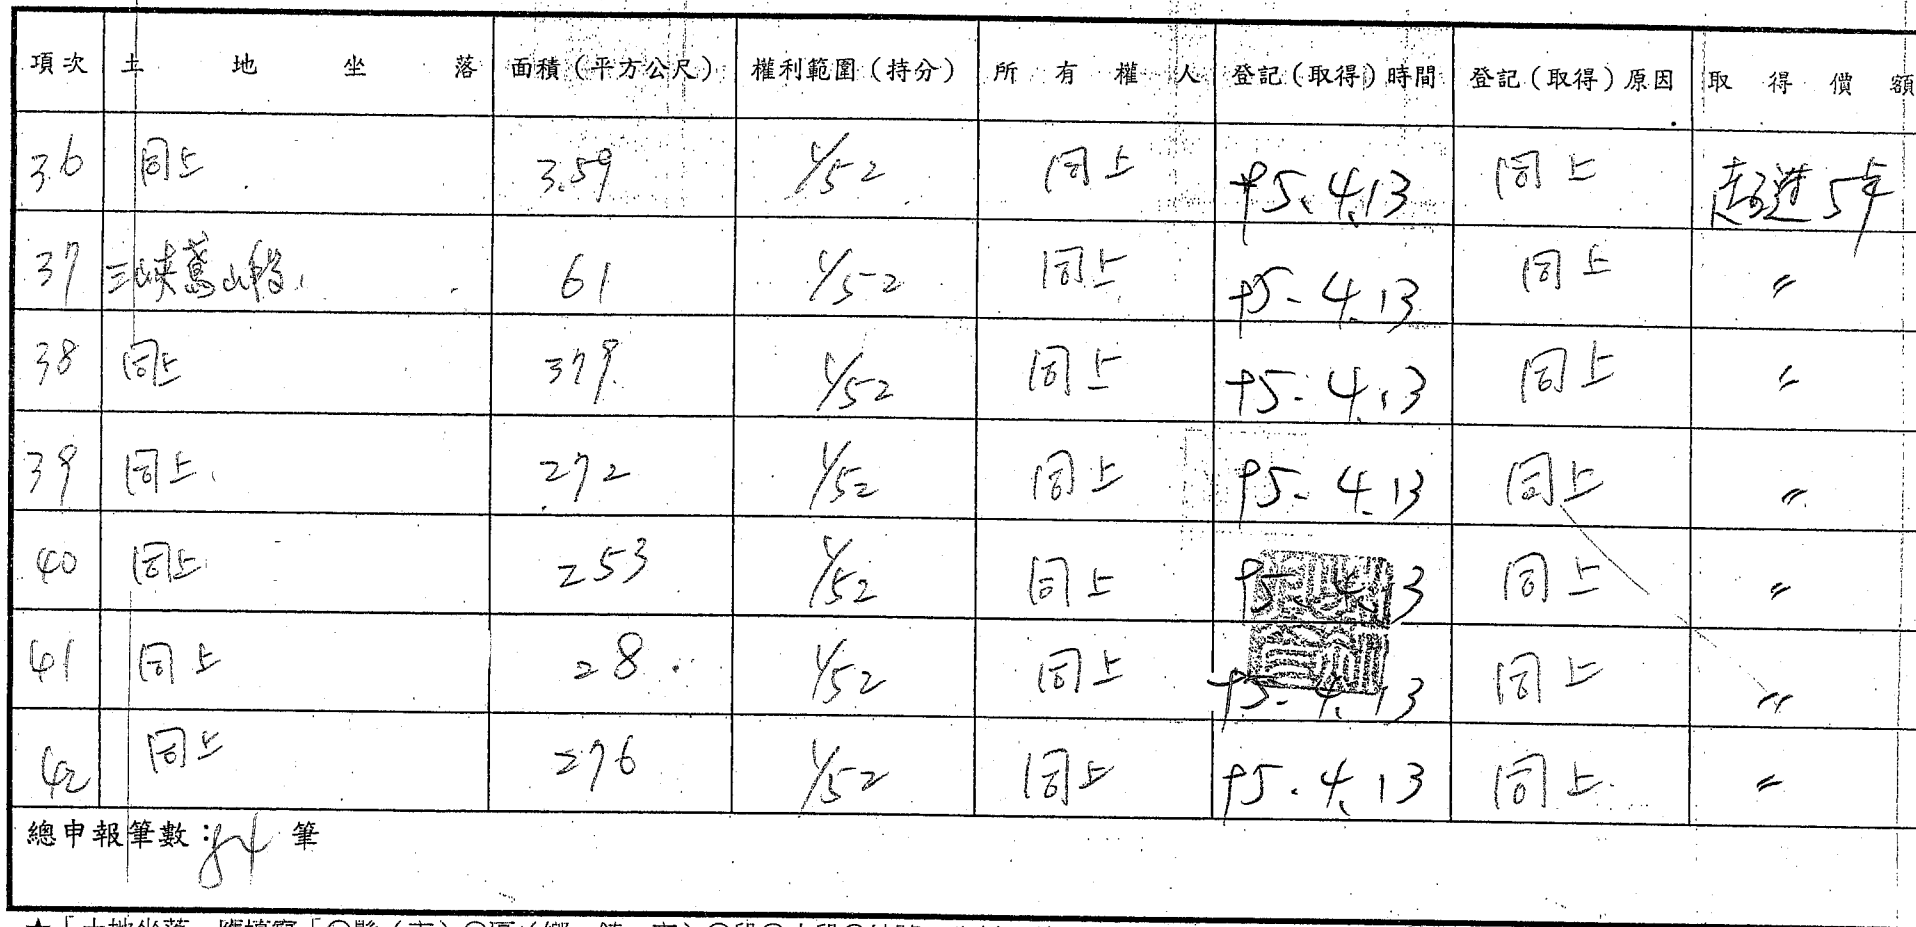 項次 土地坐落 面積(平方公尺) 權利範圍(持分) 所有權人 登記(取得)時間 登記(取得)原因 取得價額
36 同上 3.59 1/52 同上 95.4.13 同上 超過5年
37 三峽鳶山段 61 1/52 同上 95.4.13 同上 〃
38 同上 379 1/52 同上 95.4.13 同上 〃
39 同上 272 1/52 同上 95.4.13 同上 〃
40 同上 253 1/52 同上 95.4.13 同上 〃
41 同上 28 1/52 同上 95.4.13 同上 〃
42 同上 276 1/52 同上 95.4.13 同上 〃
總申報筆數:84 筆